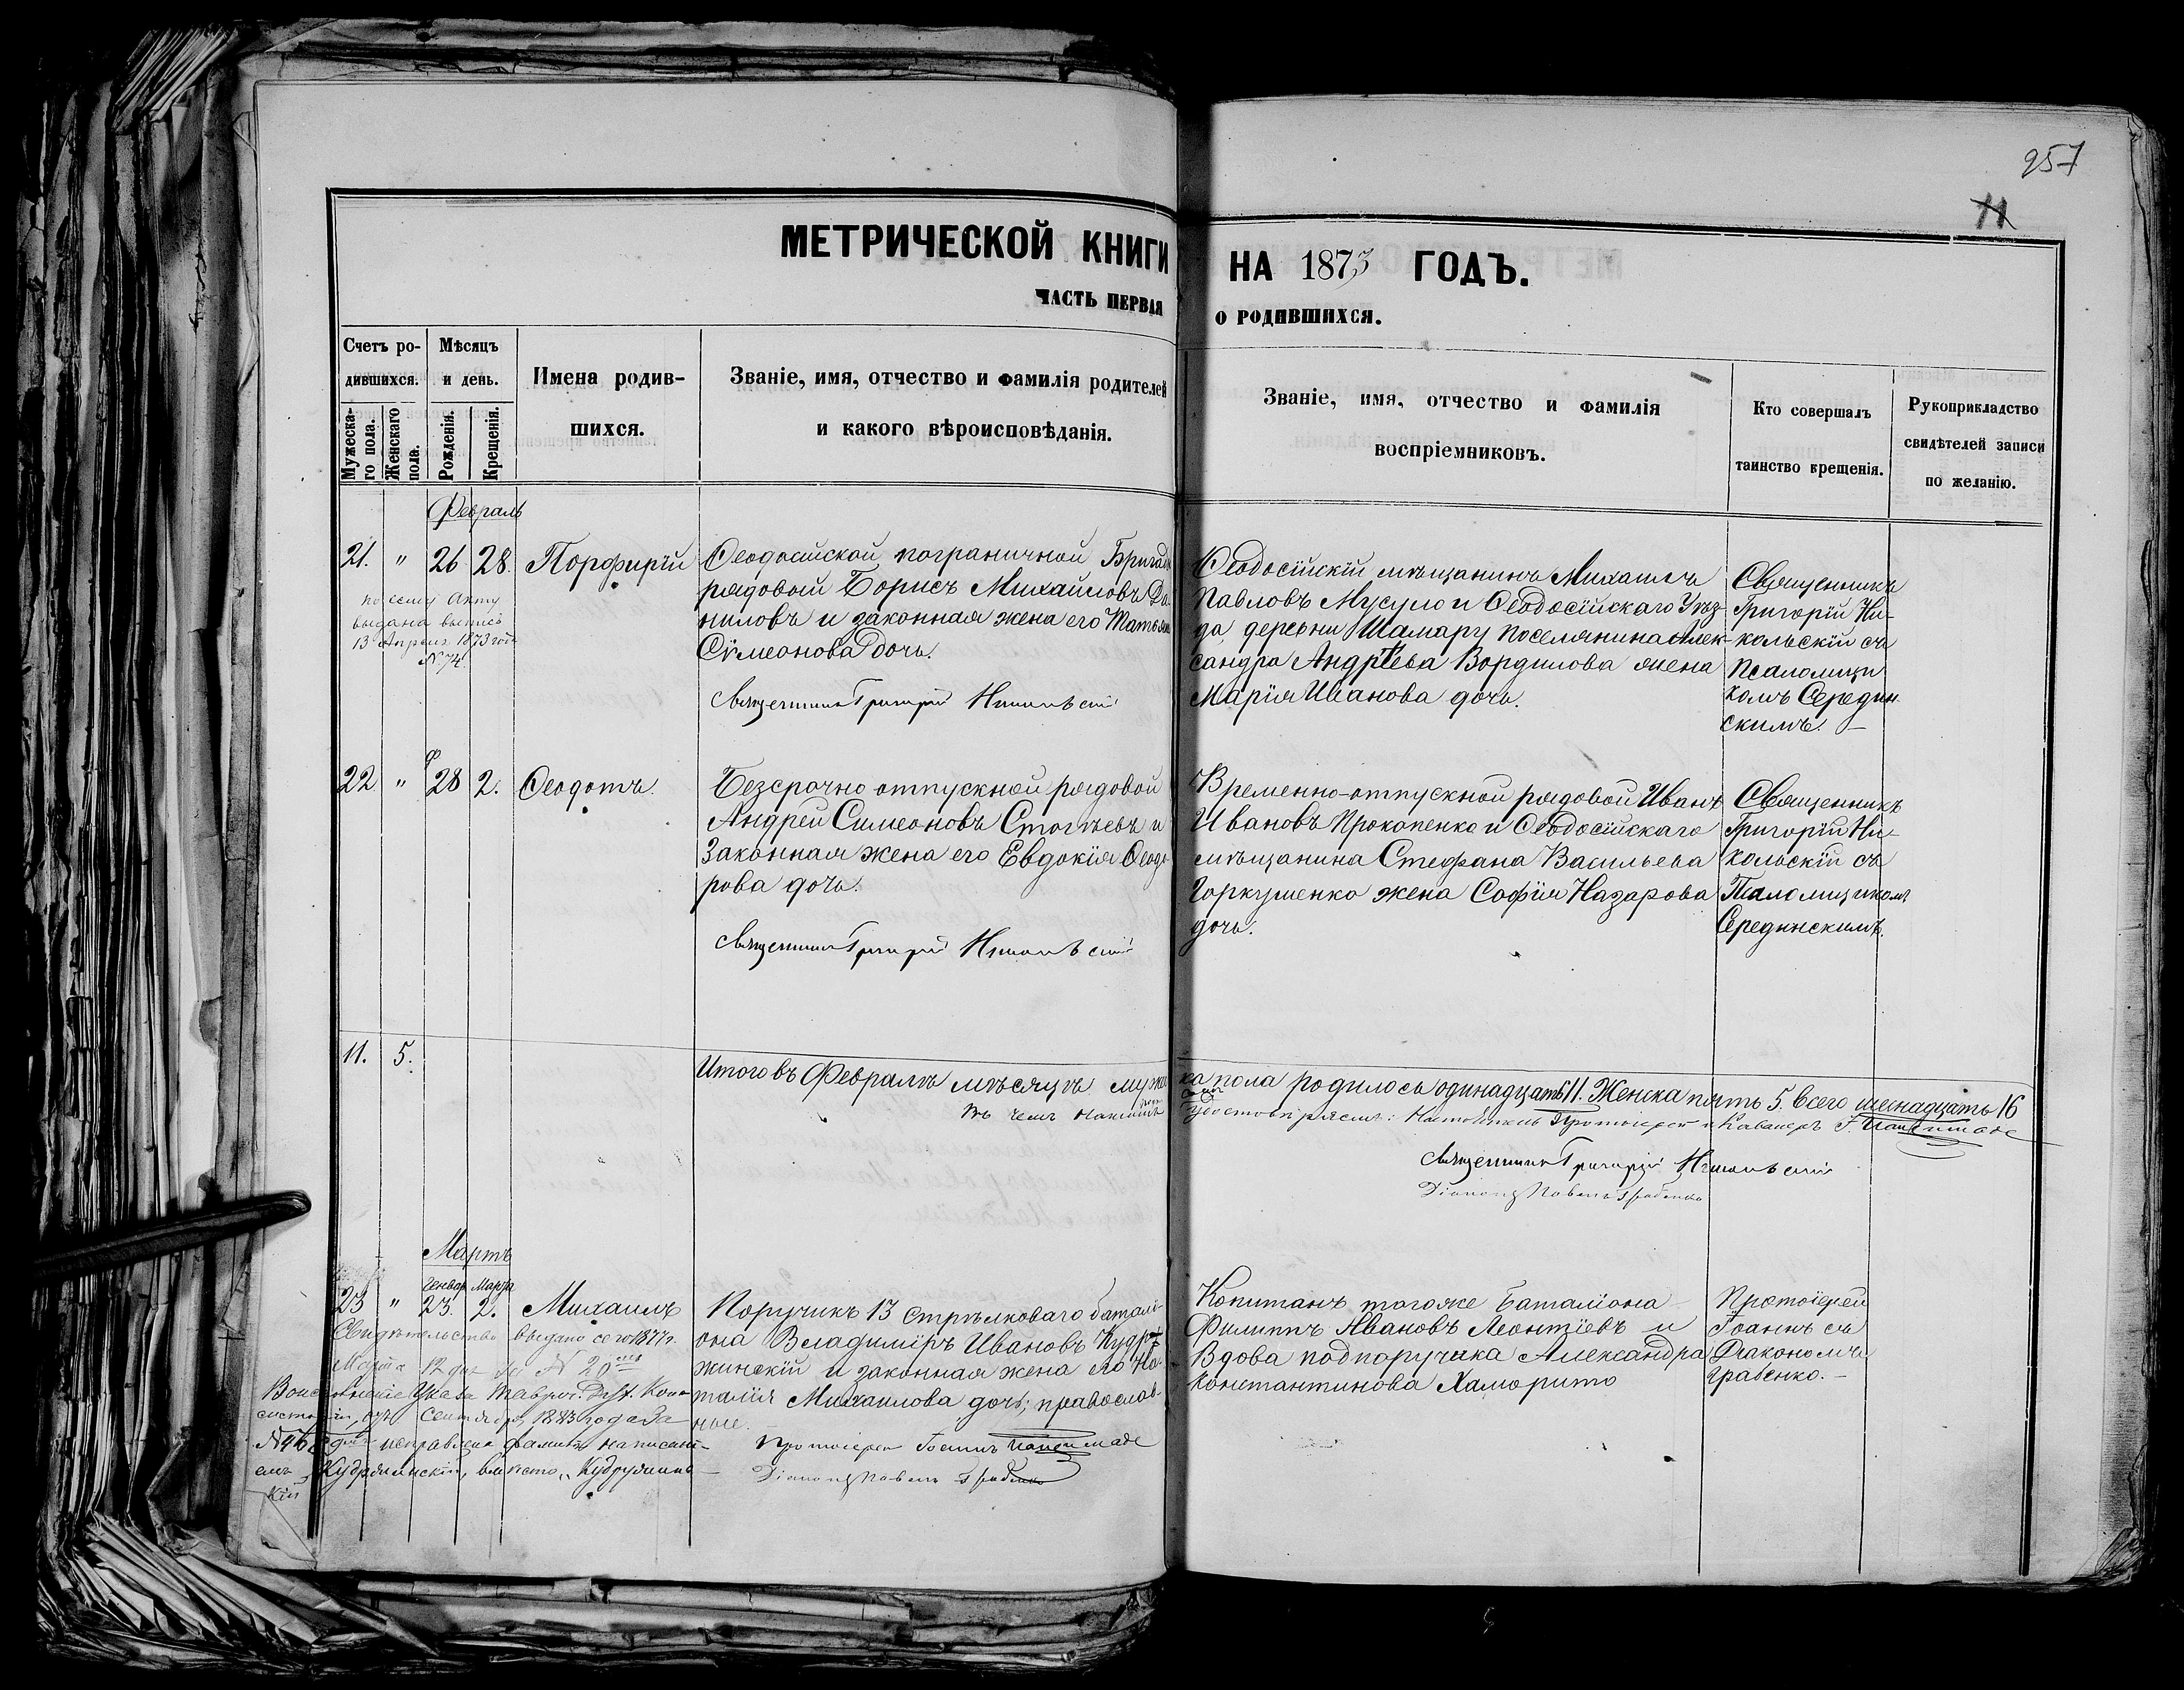 957
11
МЕТРИЧЕСКОЙ КНИГИ НА 1873 ГОДЪ.
ЧАСТЬ ПЕРВАЯ О РОДИВШИХСЯ.
Счетъ ро-
дившихся.
Мужеска-
го пола.
Женскаго
пола.
Мѣсяцъ
и день.
Рожденія.
Крещенія.
Имена родив-
шихся.
Званіе, имя, отчество и фамилія родителей
и какого вѣроисповѣданія.
Званіе, имя, отчество и фамилія
воспріемниковъ.
Кто совершалъ
таинство крещенія.
Рукоприкладство
свидѣтелей записи
по желанію.
Февраль
21. " 26 28. Порфирій
по сему Акту
выдана выпись
13 Апреля 1873 года
№ 74.
Ѳеодосійской пограничной Бригады
рядовой Борисъ Михайловъ Да-
ниловъ и законная жена его Татьяна
Сѵмеонова дочь.
Священникъ Григорій Никольскій
Ѳеодосійскій мѣщанинъ Михаилъ
Павловъ Мусуло и Ѳеодосійскаго Уѣз-
да, деревни Шамару поселянина Алек-
сандра Андрѣева Вордилова жена
Марія Иванова дочь.
Священникъ
Григорій Ни-
кольскій съ
Псаломщи
комъ Середин
скимъ. —
22 " Ф 28 2. Ѳеодотъ.
Безсрочно отпускной рядовой
Андрей Симеоновъ и
Законная жена его Евдокія Ѳеодо-
рова дочь.
Священникъ Григорій Никольскій
Временно-отпускной рядовой Иванъ
Ивановъ Прокопенко и Ѳеодосійскаго
мѣщанина Стефана Васильева
Горкушенко жена Софія Назарова
дочь.
Священникъ
Григорій Ни-
кольскій съ
Псаломщикомъ
Серединскимъ.
11. 5.
Итого въ Февралѣ мѣсяцѣ мужес
ка пола родилось одинадцать 11. Женска пять 5. Всего шеснадцать 16
въ чемъ
удостовѣряемъ: Настоятель Протоіерей и Кавалеръ І.
Священникъ Григорій Никольскій
Діаконъ Павелъ Грабенко
Мартъ
Генвар Марта
23 " 23. 2. Михаилъ
Свидѣтельство выдано сего 1877 г.
Марта 12 дня за № 20
Во исполненіе Указа Таврич. Дух. Кон-
систоріи, отъ Сентября 1883 года за
№ исправлена фамилія написані-
емъ „Кудряжинскій, вмѣсто „Кудружинс-
кій
Поручикъ 13 стрѣлковаго баталі-
она Владиміръ Ивановъ Кудря
жинскій и законная жена его На-
талія Михаилова дочь; православ-
ные.
Протоіерей Іоаннъ
Діаконъ Павелъ Грабенко
Копитанъ тогоже Баталіона
Филиппъ Ивановъ Леонтіевъ и
Вдова подпоручика Александра
Константинова Хаморито
Протоіерей
Іоаннъ съ
Діакономъ
Грабенко. —